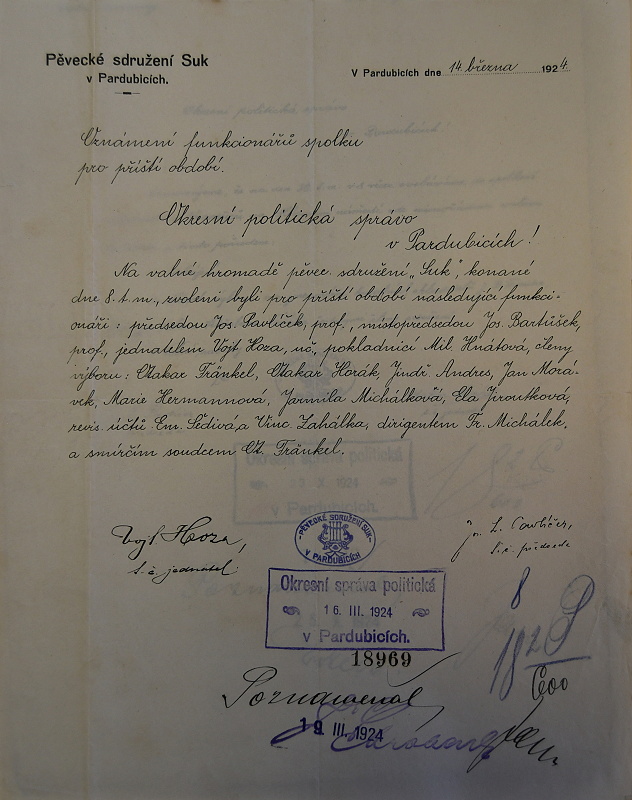 Pěvecké sdružení Suk
v Pardubicích.
V Pardubicích dne 14. března 1924.
Oznámení funkcionářů spolku
pro příští období.
Okresní politická správo
v Pardubicích!
Na valné hromadě pěvec. sdružení „Suk", konané
dne 8. t. m., zvoleni byli pro příští období následující funkci-
onáři: předsedou Jos. Pavlíček, prof., místopředsedou Jos. Bartůšek,
prof., jednatelem Vojt. Hoza, uč., pokladnicí Mil. Hnátová, členy
výboru: Otakar Fränkel, Otakar Horák, Jindř. Andres, Jan Morá-
vek, Marie Hermannová, Jarmila Michálková, Ela Jiroutková,
revis. účtů Em. Šedivá a Vinc. Zahálka, dirigentem Fr. Michálek,
a smírčím soudcem Ot. Fränkel.
Vojt. Hoza,
t. č. jednatel
Pavlíček,
t. č. předseda
PĚVECKÉ SDRUŽENÍ SUK
V PARDUBICÍCH
Okresní správa politická
16. III. 1924
v Pardubicích.
18969
8
182
600
Poznamenal
19. III. 1924